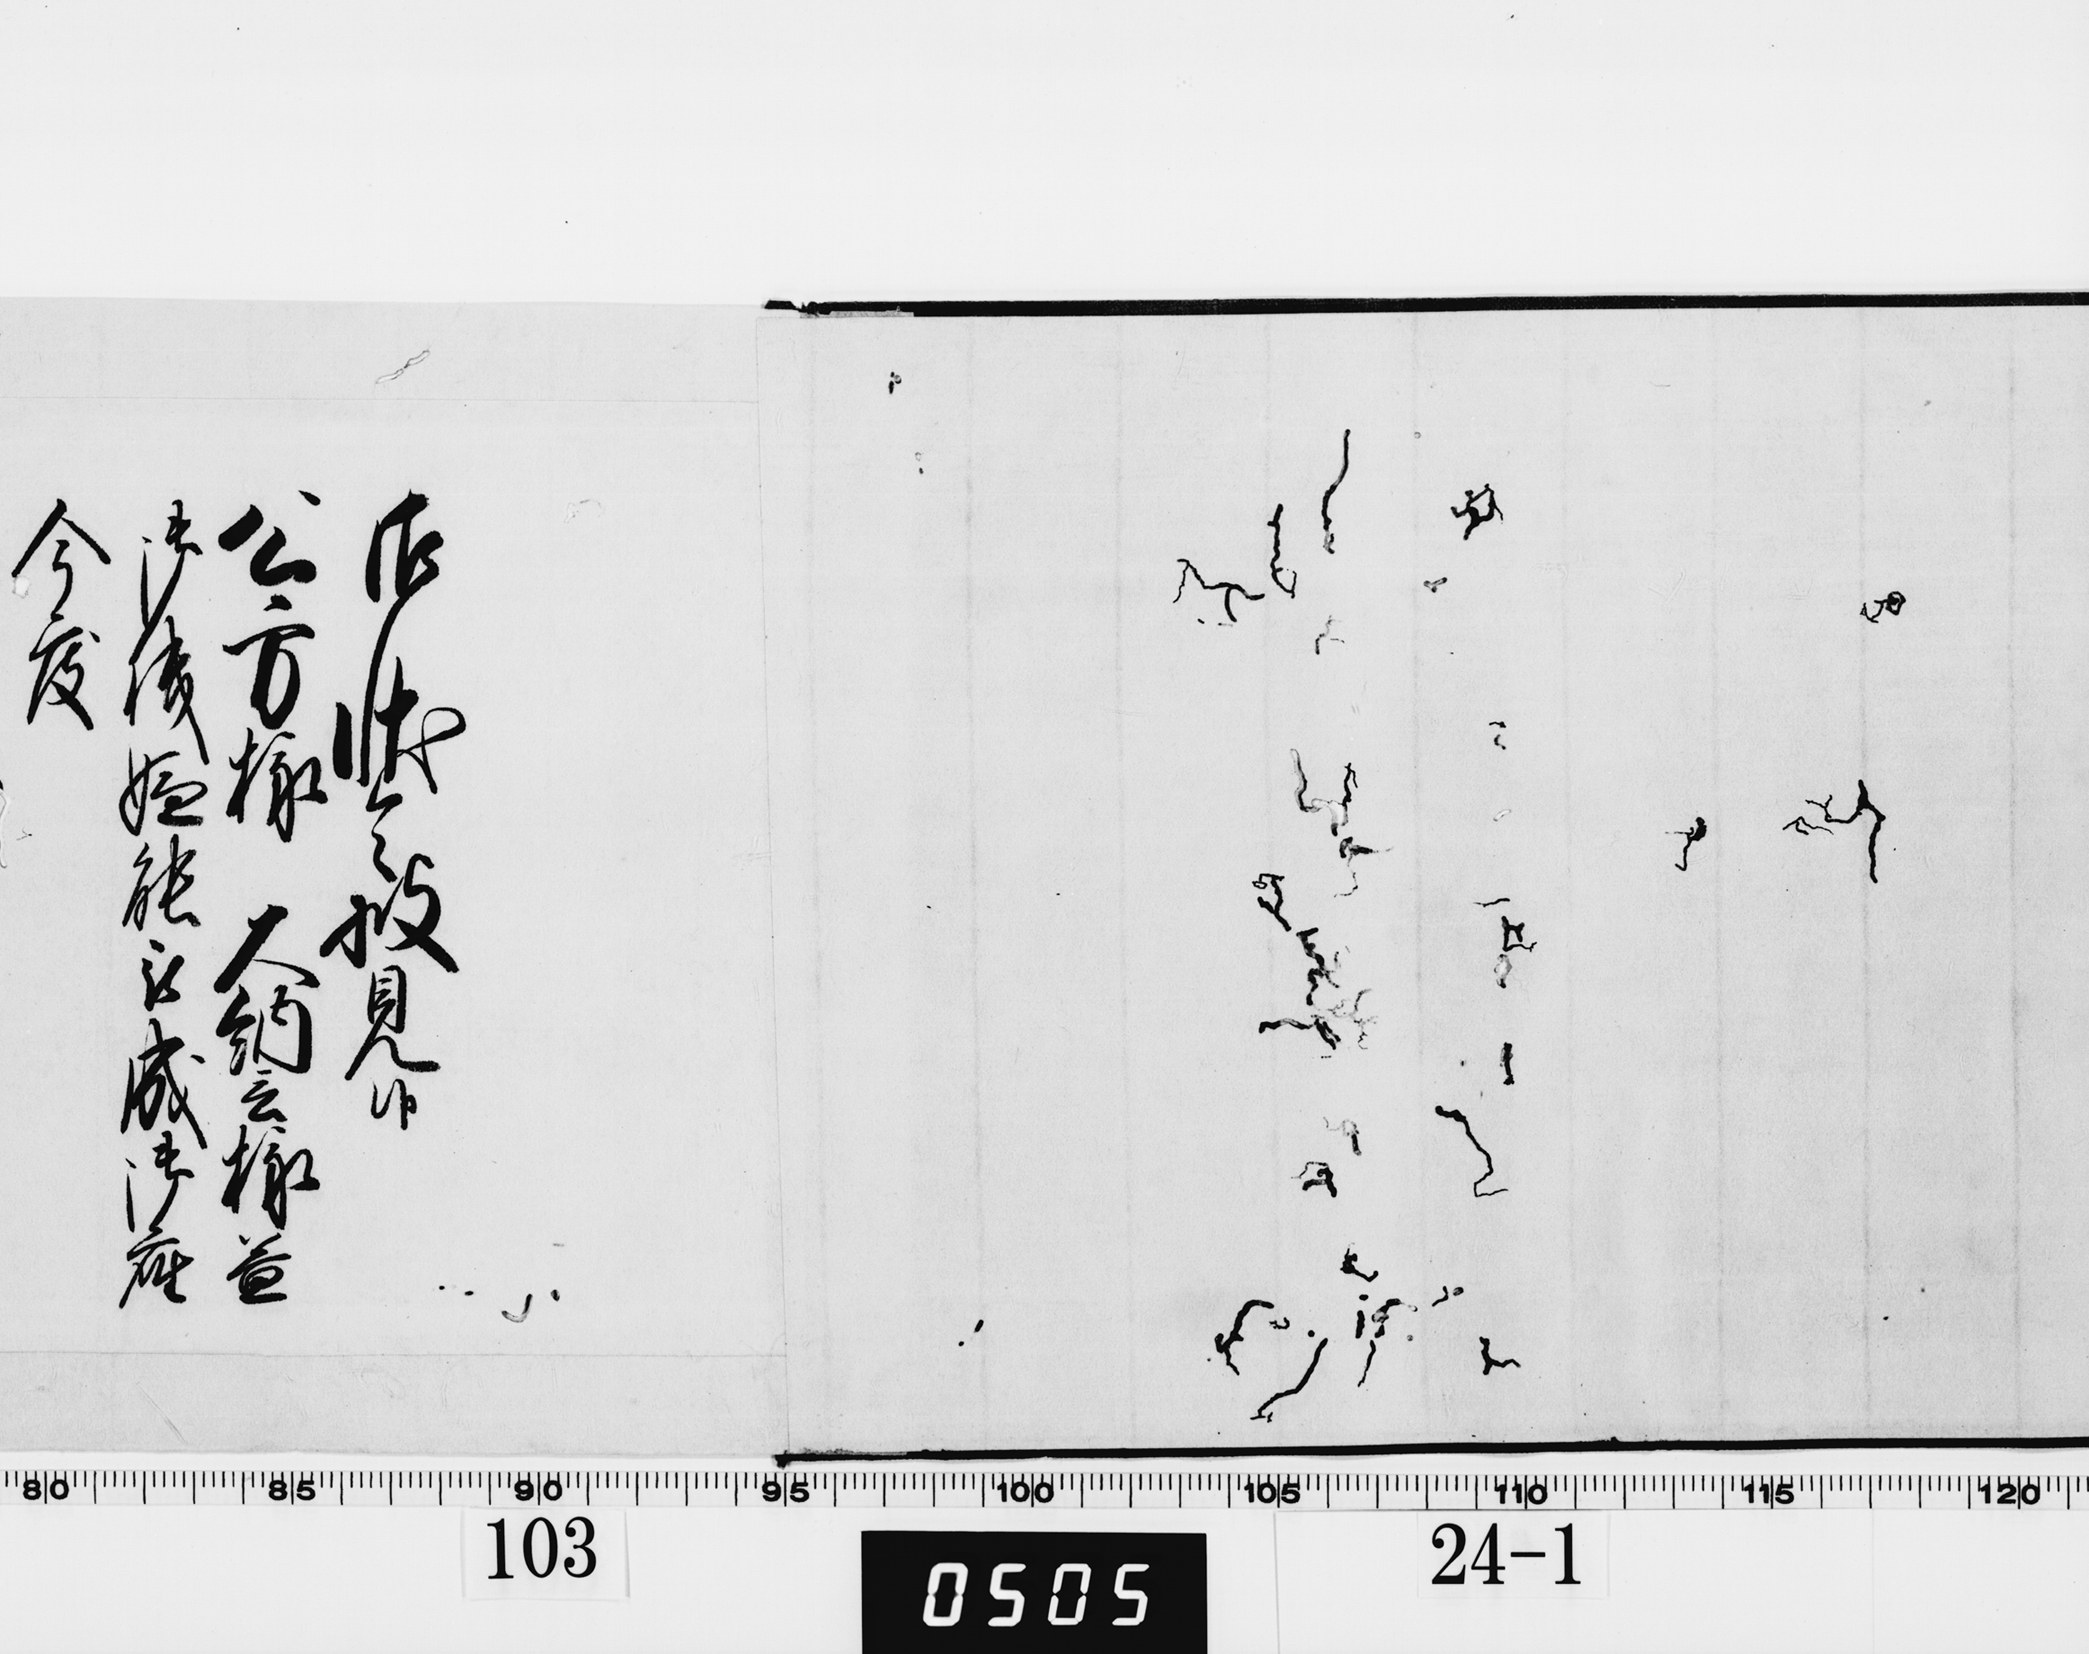 御状令披見候
公方様 大納言様益
御機嫌能被成御座
今度
80 85 90 95 100 105 110 115 120
103
0505
24-1